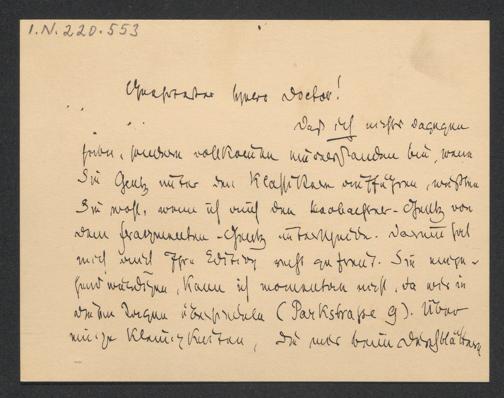 I.N. 220.553
Geehrter Herr Doctor!
Daß ich nichts dagegen
habe, sondern vollkommen einverstanden bin, wenn
Sie Gentz unter den Klassikern aufführen, wissen
Sie wohl, wenn ich auch den Beobachter-Gentz von
dem Fragmenten-Gentz unterscheide. Darum hat
mich auch Ihre Edition recht gefreut. Sie
kann ich momentan nicht, da wir in
diesen Tagen übersiedeln (Parkstraße 9). Über
einige Kleinigkeiten, die mir beim Durchblättern